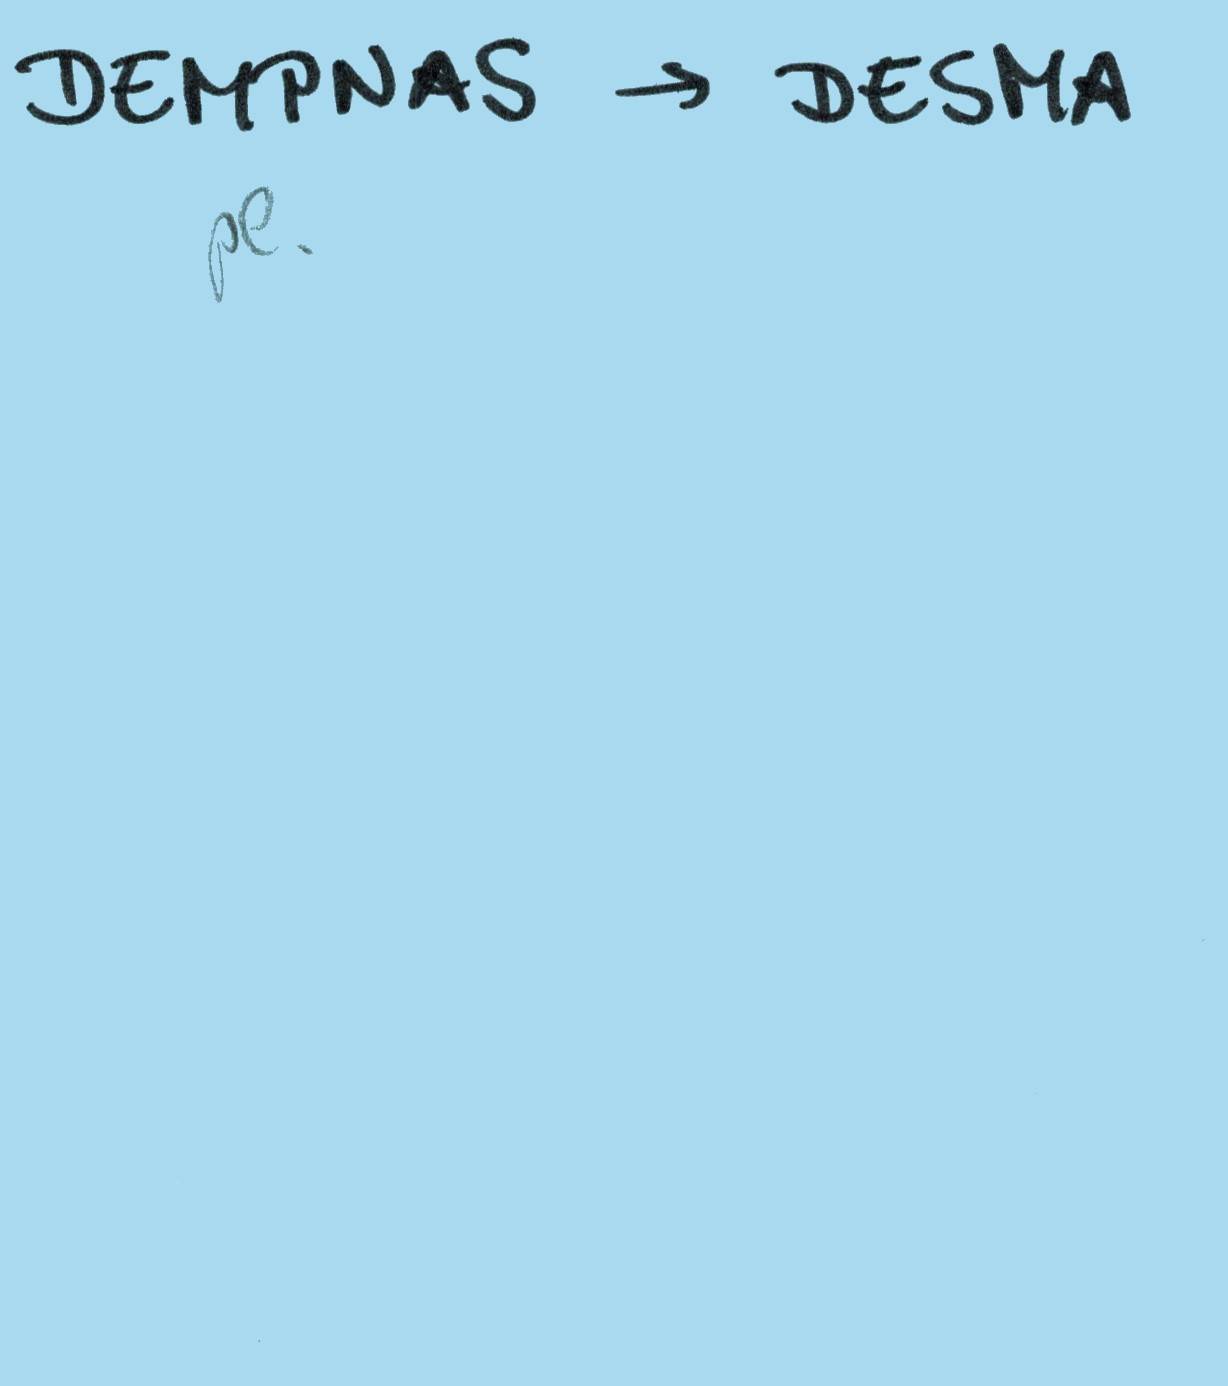 DEMPNAS → DESMA
pl.